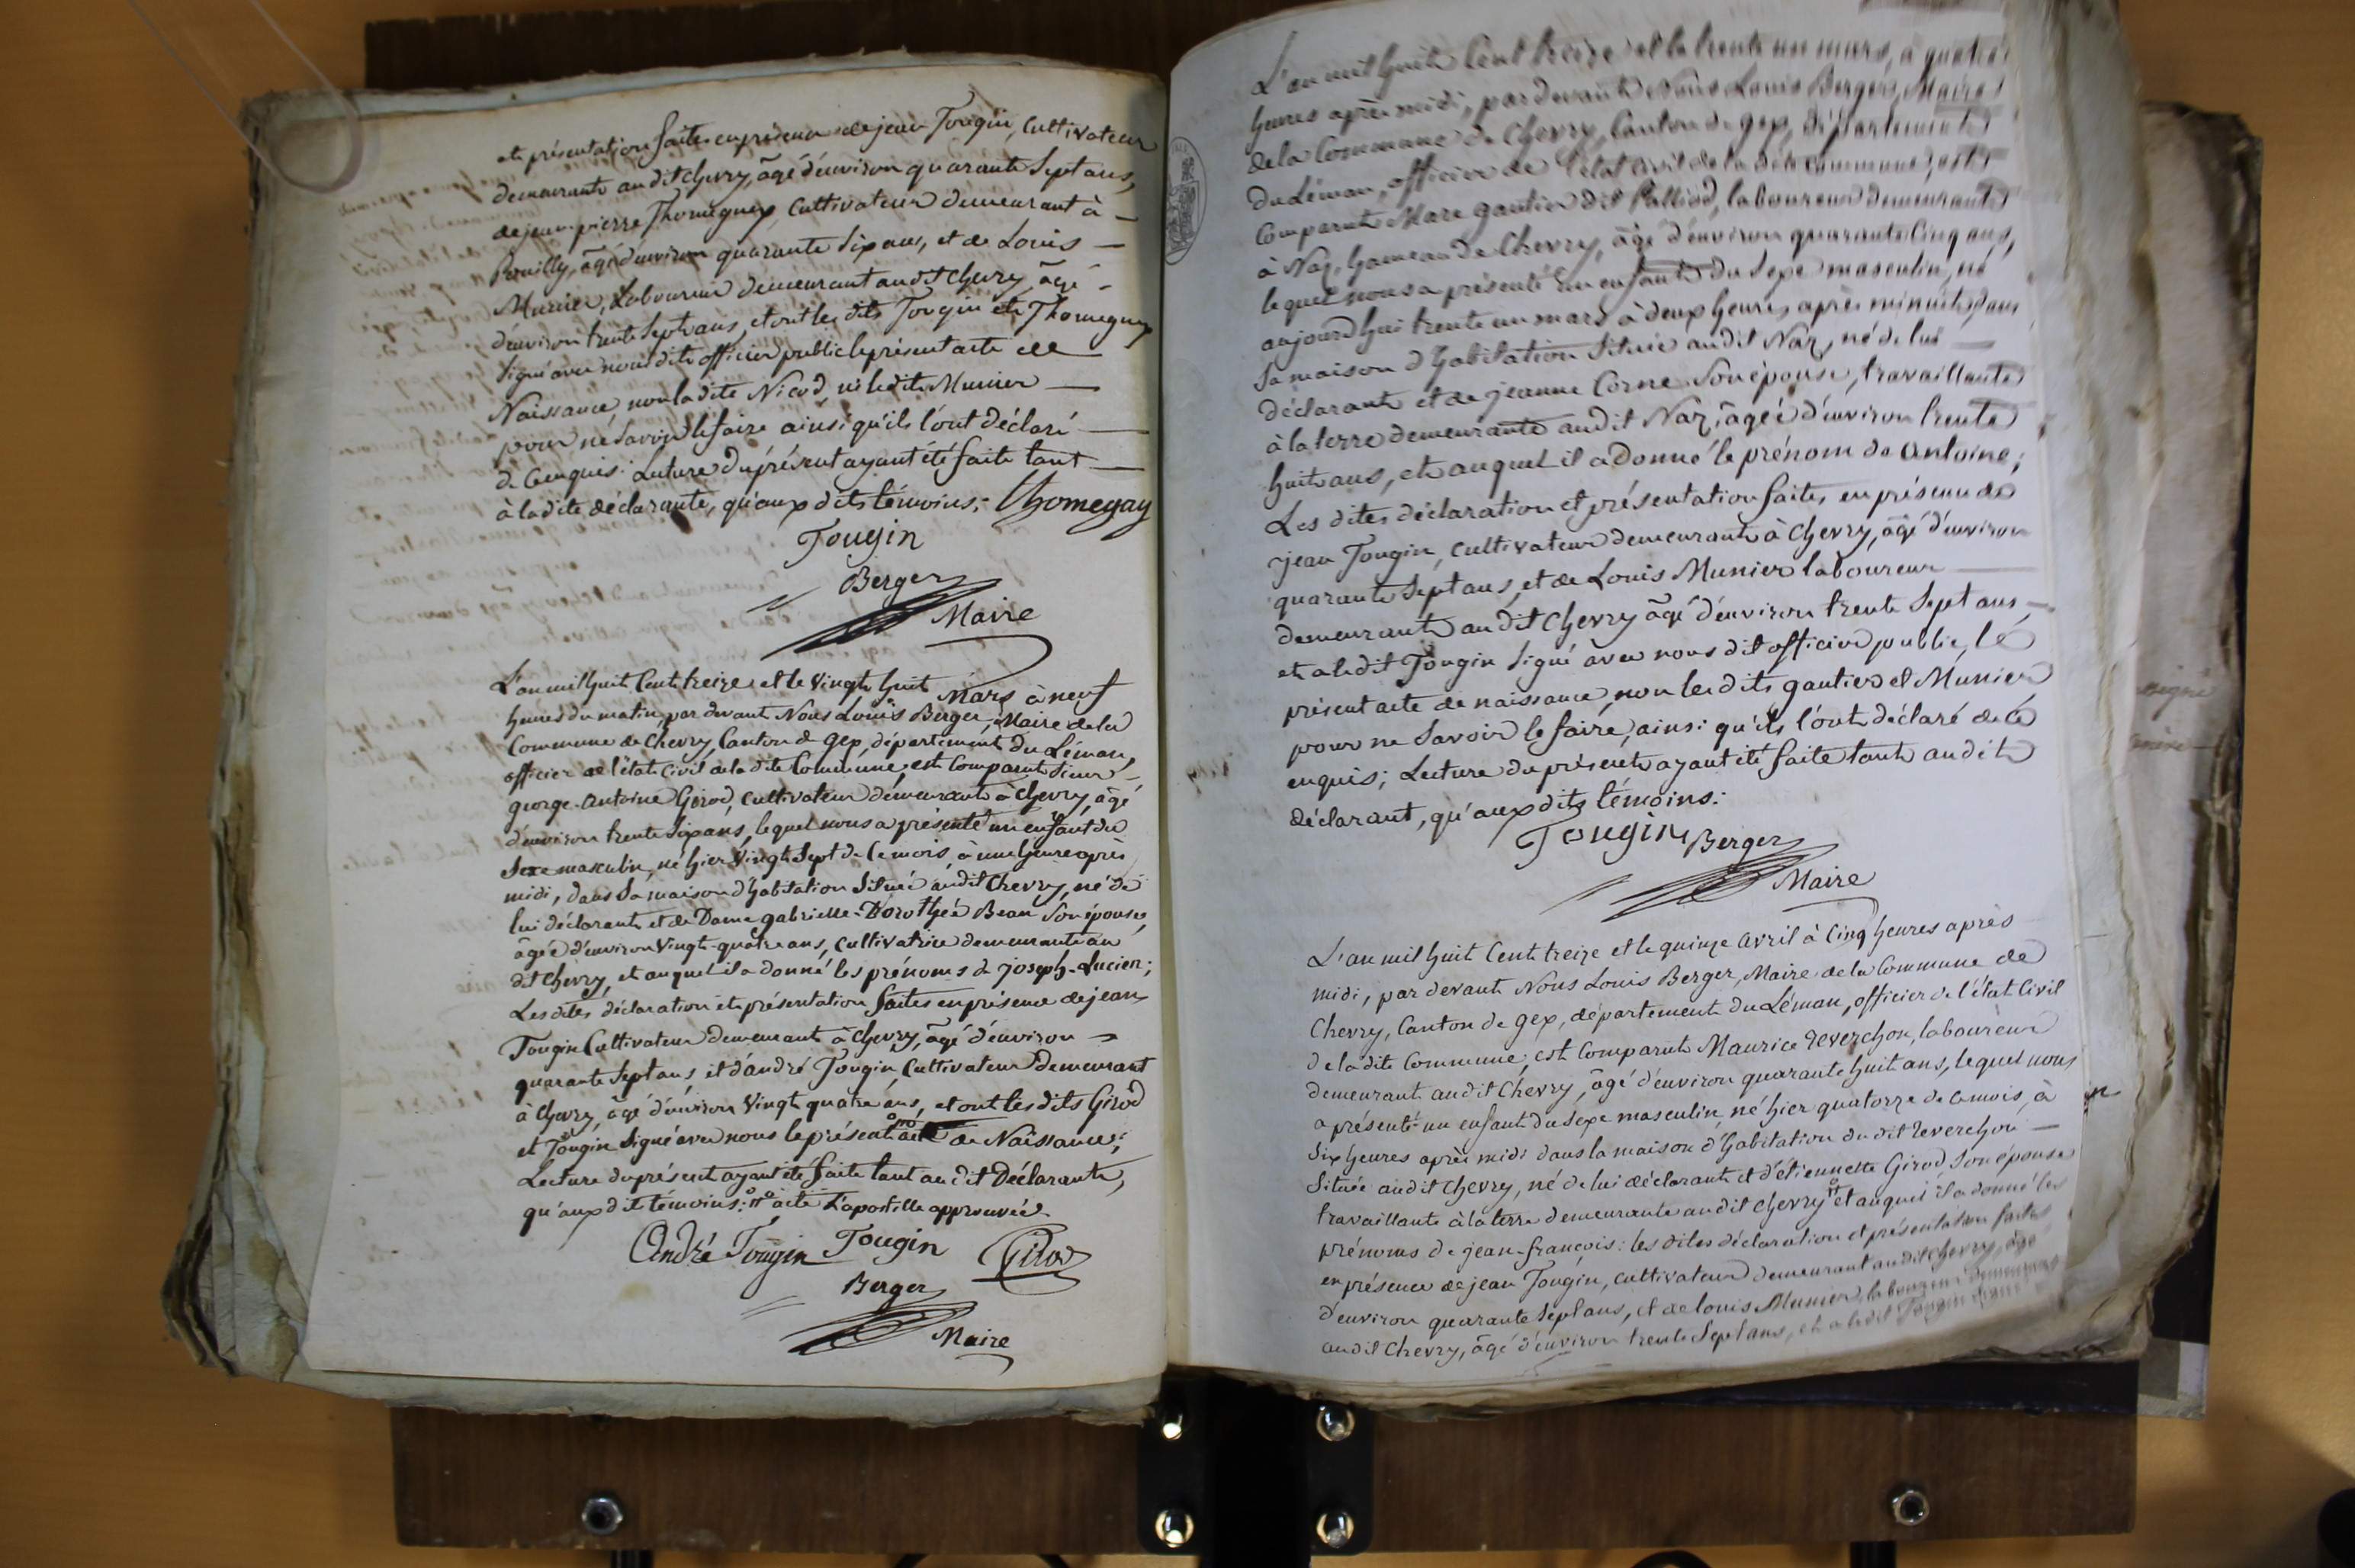 et présentation faites en présence de jean Tougin, Cultivateur
demeurant au dit Chevry, âgé d'environ quarante Sept ans,
de jean-pierre Thomeguex, Cultivateur demeurant à
Pouilly, âgé d'environ quarante Six ans, et de Louis
Munier, Laboureur demeurant au dit Chevry, âgé
d'environ trente Sept ans, et ont les dits Tougin et Thomeguex
Signé avec nous dit officier public le présent acte de
Naissance, non la dite Nicod, ni le dit Munier
pour ne Savoir le faire ainsi qu'ils l'ont déclaré
de ce enquis: Lecture du présent ayant été faite tant
à la dite déclarante, qu'aux dits témoins; Thomegay
Tougin
Berger
Maire
L'an mil huit Cent treize et le Vingt huit Mars à neuf
heures du matin, par devant Nous Louis Berger, Maire de la
Commune de Chevry, Canton de Gex, département du Léman,
officier de l'état Civil de la dite Commune, est Comparut Sieur
george-Antoine Girod, Cultivateur demeurant à Chevry, âgé
d'environ trente Six ans, lequel nous a présenté un enfant du
Sexe masculin, né hier Vingt Sept de Ce mois, à une heure après
midi, dans Sa maison d'habitation Située au dit Chevry, né de
lui déclarant et de Dame gabrielle-Dorothée Beau Son épouse,
âgée d'environ Vingt-quatre ans, Cultivatrice demeurante au
dit Chevry, et auquel il a donné les prénoms de joseph-Lucien;
Les dites déclaration et présentation faites en présence de jean
Tougin Cultivateur demeurant à Chevry, âgé d'environ
quarante Sept ans, et d'andré Tougin Cultivateur demeurant
à Chevry, âgé d'environ Vingt quatre ans, et ont les dits Girod
et Tougin Signé avec nous le présent acte de Naissance;
Lecture du présent ayant été faite tant au dit Déclarant,
qu'aux dit témoins: acte L'apostille approuvée.
André Tougin Tougin Girod
Berger
Maire
L'an mil huit Cent treize et le trente un mars, à quatre
heures après midi, par devant Nous Louis Berger, Maire
de la Commune de Chevry, Canton de gex, département
du Léman, officier de l'état Civil de la dite Commune, est
Comparut Marc gautier dit Palliod, laboureur demeurant
à Naz, hameau de Chevry, âgé d'environ quarante Cinq ans,
lequel nous a présenté un enfant du Sexe masculin, né
aujourd'hui trente un mars à deux heures après minuit, dans
Sa maison d'habitation Située au dit Naz, né de lui
déclarant et de jeanne Corne Son épouse, travaillante
à la terre demeurante au dit Naz, âgée d'environ trente
huit ans, et auquel il a donné le prénom de Antoine;
Les dites déclaration et présentation faites en présence de
jean Tougin, Cultivateur demeurant à Chevry, âgé d'environ
quarante Sept ans, et de Louis Munier laboureur
demeurant au dit Chevry âgé d'environ trente Sept ans,
et a le dit Tougin Signé avec nous dit officier public, le
présent acte de naissance, non les dits gautier et Munier
pour ne Savoir le faire, ainsi qu'ils l'ont déclaré de ce
enquis; Lecture du présent ayant été faite tant au dit
déclarant, qu'aux dits témoins:
Tougin Berger
Maire
L'an mil huit Cent treize et le quinze avril à Cinq heures après
midi, par devant Nous Louis Berger, Maire de la Commune de
Chevry, Canton de gex, département du Léman, officier de l'état Civil
de la dite Commune, est Comparut Maurice Reverchon, laboureur
demeurant au dit Chevry, âgé d'environ quarante huit ans, lequel nous
a présenté un enfant du Sexe masculin, né hier quatorze de ce mois, à
Six heures après midi dans la maison d'habitation du dit Reverchon
Située au dit Chevry, né de lui déclarant et d'étiennette Girod Son épouse
travaillante à la terre demeurante au dit Chevry et auquel il a donné les
prénoms de jean-françois: les dites déclaration et présentation faites
en présence de jean Tougin, cultivateur demeurant au dit Chevry, âgé
d'environ quarante Sept ans, et de louis Munier, laboureur demeurant
au dit Chevry, âgé d'environ trente Sept ans, et a le dit Tougin Signé